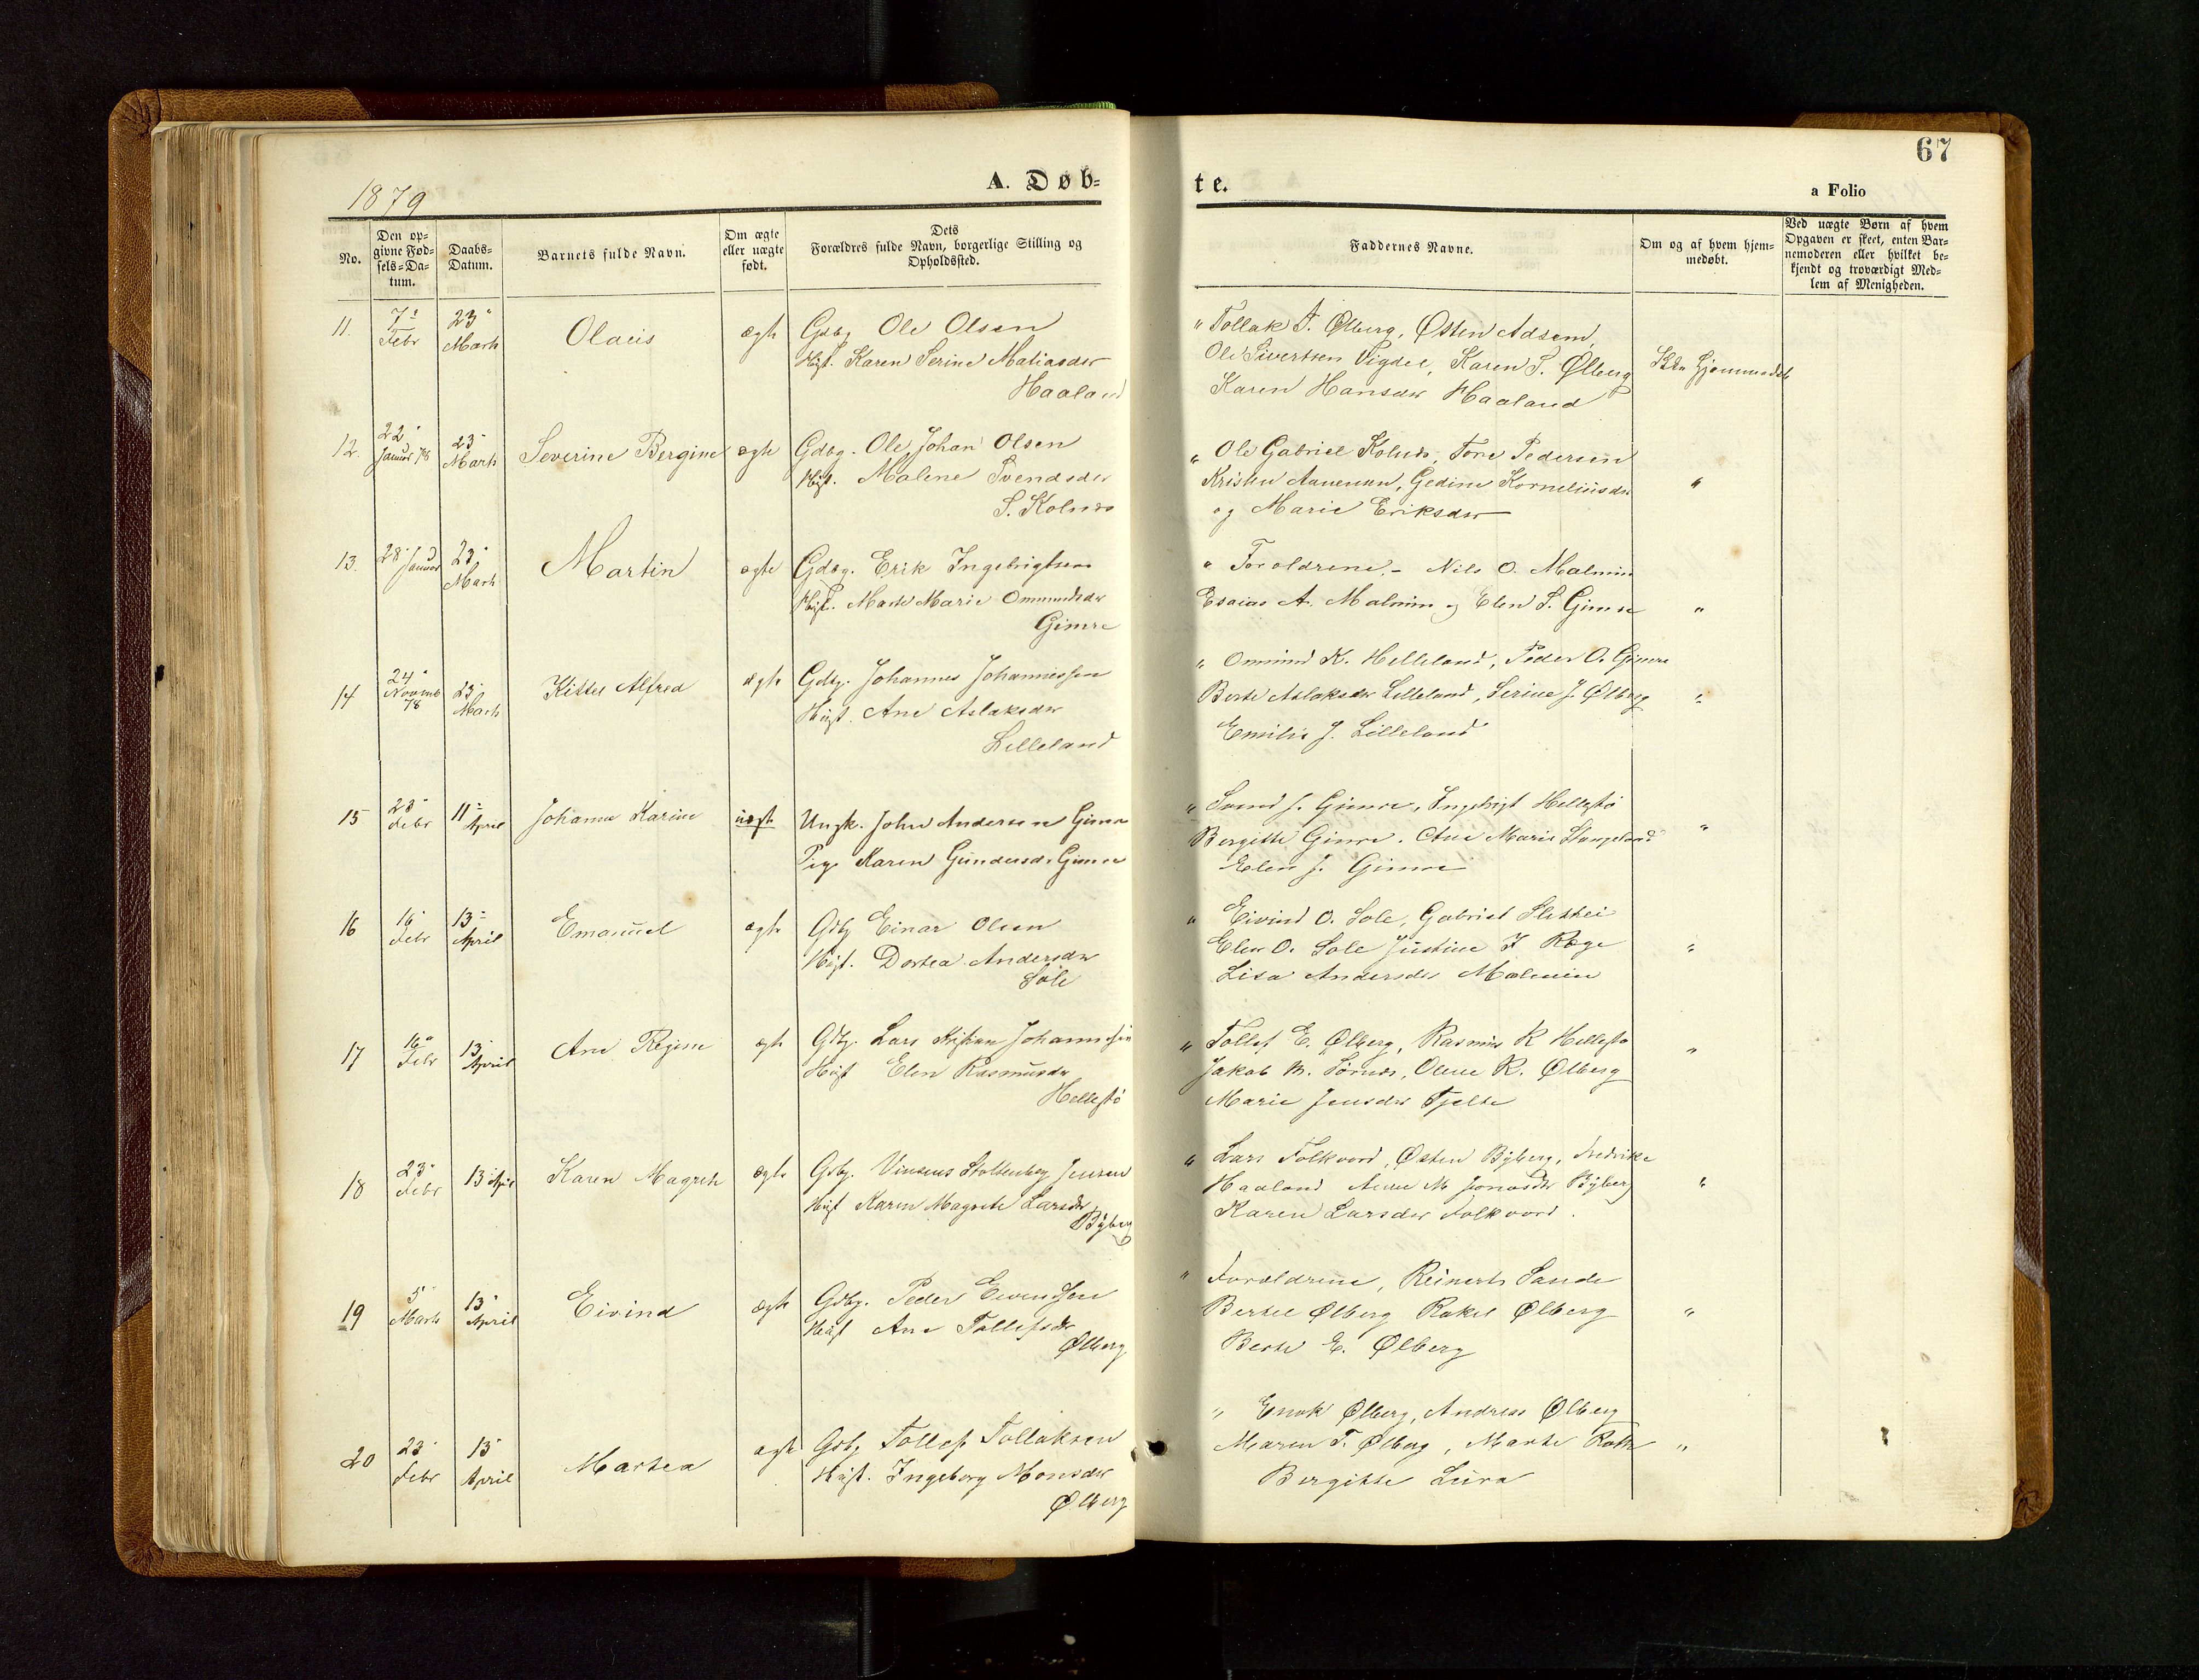 1879
A. Døb=
te.
67
a Folio
No.
Den op=
givne Fød=
sels=Da=
tum.
Daabs=
Datum.
Barnets fulde Navn.
Om ægte
eller uægte
født.
Dets
Forældres fulde Navn, borgerlige Stilling og
Opholdssted.
Faddernes Navne.
Om og af hvem hjem=
medøbt.
Ved uægte Børn af hvem
Opgaven er skeet, enten Bar=
nemoderen eller hvilket be=
kjendt og troværdigt Med=
lem af Menigheden.
11. 7 Febr 23 Marts Olaus ægte Gdbg Ole Olsen
Hust. Karen Serine Matiasdtr
Haaland
" Tollak T. Ølberg, Østen Adsem,
Ole Sivertsen Vigdel, Karen T. Ølberg
Karen Hansdtr Haaland
Hjemmedøbt
12. 22 Januar 78 23 Marts Severine Bergine ægte Gdbg. Ole Johan Olsen
Hust. Malene Svendsdtr
S. Kolnes
" Ole Gabriel Kolnes, Tore Pedersen
Kristen Aanensen, Gedine Korneliusdtr "
og Marie Eriksdtr
13. 28 Januar 23 Marts Martin ægte Gdbg. Erik Ingebrigtsen
Hust. Marte Marie Ommundsdtr
Gimre
" Foroldrene, - Nils O. Malmin
Esaias A. Malmin og Elen S. Gimre "
14 24 Novemb 78 23 Marts Kittel Alfred ægte Gdbg. Johannes Johannessen
Hust. Ane Aslaksdtr
Lilleland
" Ommund K. Helleland, Peder O. Gimre
Berte Aslaksdtr Lilleland, Serine J. Ølberg "
Emilie J. Lilleland
15 23 Febr 11 April Johanna Karine uægt Ungk. John Andersen Gimre
Pige Karen Gundersd. Gimre
" Svend J. Gimre, Ingebrigt Hellestø
Bergitte Gimre. Ane Marie Stangeland "
Elen J. Gimre
16 16 Febr 13 April Emanuel ægte Gdbg Einar Olsen
Hust. Dortea Andersdtr
Sole
" Eivind O. Sole, Gabriel
Elen O. Sole Justine T Ræge "
Lisa Andersdtr Malmin
17 16 Febr 13 April Ane Regine ægte Gdbg. Lars Kristian Johannessen
Hust Elen Rasmusdtr
Hellestø
" Tollef E. Ølberg, Rasmus R Hellestø "
Jakob M. Sørnes, Olene R. Ølberg
Marie Jensdtr Tjelte
18 23 Febr 13 April Karen Magrete ægte Gdbg. Vinsens Stoltenberg Jensen
Hust Karen Magrete Larsdtr
Byberg
" Lars Folkvord, Østen Byberg, Fredrikke
Haaland Anne M Jonasdtr Byberg "
Karen Larsdtr Folkvord.
19 5 Marts 13 April Eivind ægte Gdbg. Peder Eivendsen
Hust Ane Tollefsdtr
Ølberg
" Forældrene, Reinert Sande
Bertel Ølberg Rakel Ølberg "
Berte E. Ølberg
20 23 Febr 13 April Martea ægte Gdbg Tollef Tollaksen
Hust. Ingeborg Monsdtr
Ølberg
" Enok Ølberg, Andreas Ølberg
Maren T. Ølberg, Marte Rott "
Bergitte Lura